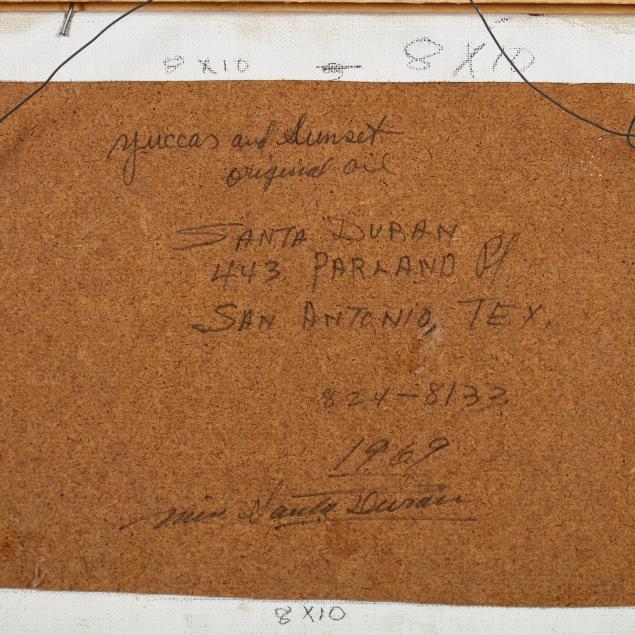 8 x 10 8 x 10
yuccas and Sunset
original oil
SANTA DURAN
443 PARLAND Pl
SAN ANTONIO, TEX.
824-8133
1969
miss Santa Duran
8 x 10